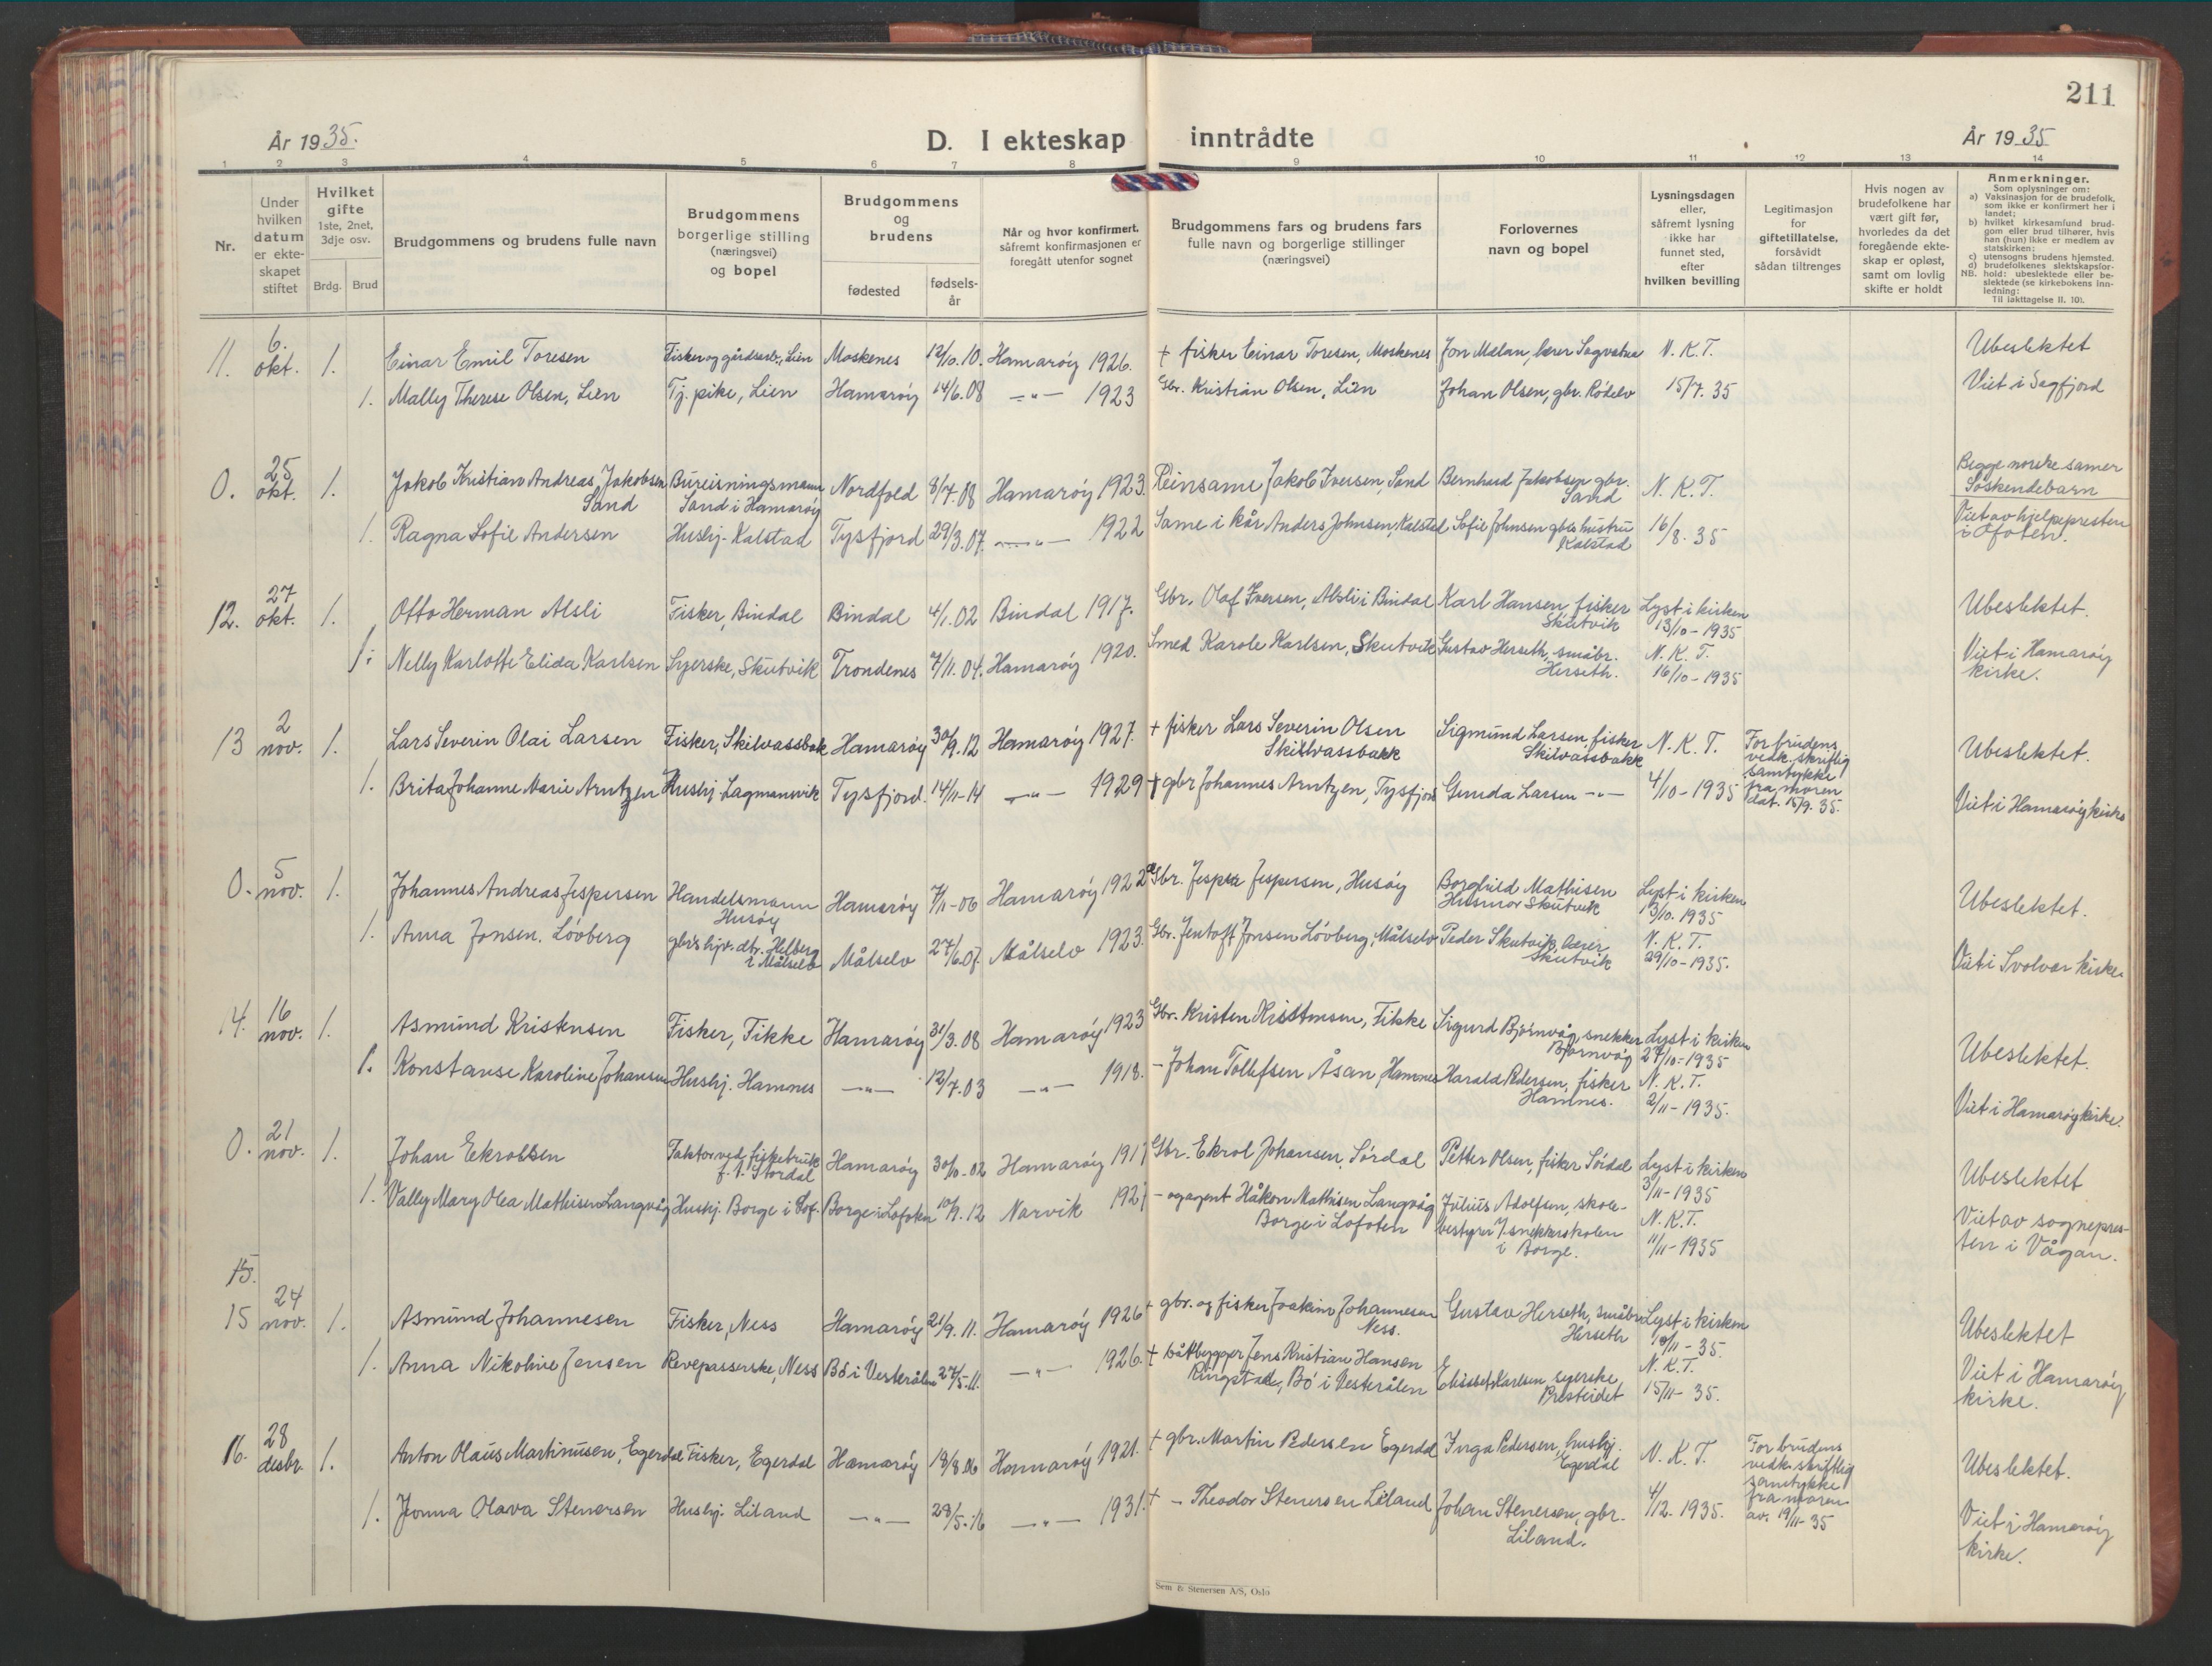 211
År 1935.
D. I ekteskap inntrådte
År 1935
1 2 3 4 5 6 7 8 9 10 11 12 13 14
Nr.
Under hvilken datum er ekteskapet stiftet
Hvilket gifte
1ste, 2net, 3dje osv.
Brdg. Brud
Brudgommens og brudens fulle navn
Brudgommens borgerlige stilling (næringsvei) og bopel
Brudgommens og brudens
fødested
fødselsår
Når og hvor konfirmert, såfremt konfirmasjonen er foregått utenfor sognet
Brudgommens fars og brudens fars fulle navn og borgerlige stillinger (næringsvei)
Forlovernes navn og bopel
Lysningsdagen eller, såfremt lysning ikke har funnet sted, efter hvilken bevilling
Legitimasjon for giftetillatelse, forsåvidt sådan tiltrenges
Hvis nogen av brudefolkene har vært gift før, hvorledes da det foregående ekteskap er opløst, samt om lovlig skifte er holdt
Anmerkninger.
Som oplysninger om:
a) Vaksinasjon for de brudefolk, som ikke er konfirmert her i landet;
b) hvilket kirkesamfund brudgom eller brud tilhører, hvis han (hun) ikke er medlem av statskirken;
c) utensogns brudens hjemsted.
d) brudefolkenes slektskapsforhold: ubeslektede eller beslektede (se kirkebokens innledning:
NB.
Til iakttagelse II. 10).
11. 6. okt. 1. Einar Emil Toresen Fisker og gårdsarb., Lien Moskenes 12/10.10. Hamarøy 1926. + fisker Einar Toresen, Moskenes Jon Mælan, lærer Sagvatn N. K. T. Ubeslektet
1. Mally Therese Olsen, Lien Tj. pike, Lien Hamarøy 14/6.08 —"— 1923 Gbr. Kristian Olsen, Lien Johan Olsen, gbr. Rødelv 15/7. 35 Viet i Sagfjord
0. 25 okt. 1. Jakob Kristian Andreas Jakobsen Sand Bureisningsmann Sand i Hamarøy Nordfold 8/7.08 Hamarøy 1923. Reinsame Jakob Iversen, Sand Bernhard Jakobsen gbr. Sand N. K. T. Begge norske samer Søskendebarn
1. Ragna Sofie Andersen Hushj. Kalstad Tysfjord 29/3.07. —"— 1922 Same i kår Anders Johnsen, Kalstad Sofie Johnsen gbrs hustru Kalstad 16/8. 35 Viet av hjelpepresten i Ofoten.
12. 27 okt. 1. Otto Herman Alsli Fisker, Bindal Bindal 4/1.02 Bindal 1917. Gbr. Olaf Iversen, Alsli i Bindal Karl Hansen, fisker Skutvik Lyst i kirken 13/10-1935 Ubeslektet.
1. Nelly Karlotte Elida Karlsen Syerske, Skutvik Trondenes 7/11.04. Hamarøy 1920. Smed Karole Karlsen, Skutvik Gustav Herseth, småbr. Herseth. N. K. T. 16/10-1935 Viet i Hamarøy kirke.
13 2 nov. 1. Lars Severin Olai Larsen Fisker, Skilvassbakk Hamarøy 30/9.12 Hamarøy 1927. + fisker Lars Severin Olsen Skilvassbakk Sigmund Larsen, fisker Skilvassbakk N. K. T. For brudens vedk. skriftlig samtykke fra moren dat. 15/9.35. Ubeslektet.
1. Brita Johanne Marie Arntzen Hushj. Lagmannsvik Tysfjord. 14/11-14 —"— 1929 + gbr Johannes Arntzen, Tysfjord Gunda Larsen —"— 4/10-1935 Viet i Hamarøy kirke
0. 5 nov. 1. Johannes Andreas Jespersen Handelsmann Husøy Hamarøy 7/11-06 Hamarøy 1922 Gbr. Jesper Jespersen, Husøy Borghild Mathisen Husmor Skutvik Lyst i kirken 13/10.1935 Ubeslektet.
1. Anna Jonsen. Løvberg gbrs hjv. dtr. Helberg i Målselv Målselv 27/6.07. Målselv 1923. Gbr. Jentoft Jonsen Løvberg, Målselv Peder Skutvik, lærer Skutvik N. K. T. 29/10-1935. Viet i Svolvær kirke.
14. 16 nov. 1. Asmund Kristensen Fisker, Fikke Hamarøy 31/3.08 Hamarøy 1923 Gbr. Kristen Kristensen, Fikke Sigurd Bjørnvåg, snekker Bjørnvåg Lyst i kirken 27/10-1935 Ubeslektet.
1. Konstanse Karoline Johansen Hushj. Hamnes —"— 12/7.03 —"— 1918. - Johan Tollefsen Åsan, Hamnes Harald Pedersen, fisker Hamnes. N. K. T. 2/11-1935. Viet i Hamarøy kirke.
0. 21 nov. 1. Johan Ekrolsen Faktor ved fiskebruk f. t. Stordal Hamarøy 30/10.02 Hamarøy 1917 Gbr. Ekrol Johansen, Sørdal Petter Olsen, fisker Sørdal Lyst i kirken 3/11-1935 Ubeslektet
1. Vally Mary Olea Mathisen Langvåg Hushj. Borge i Lof. Borge i Lofoten 10/9.12 Narvik 1927 - og agent Håkon Mathisen Langvåg Borge i Lofoten Julius Adolfsen, skolebestyrer v. snekkerskolen i Borge. N. K. T. 11/11-1935 Viet av sognepresten i Vågan.
15.
15 24 nov. 1. Asmund Johannesen Fisker, Ness Hamarøy 21/9.11. Hamarøy 1926 + gbr. og fisker Joakim Johannesen Ness. Gustav Herseth, småbr. Herseth Lyst i kirken 10/11-35. Ubeslektet
1. Anna Nikoline Jensen Revepasserske, Ness Bø i Vesterålen 27/5.11. —"— 1926. + båtbygger Jens Kristian Hansen Ringstad, Bø i Vesterålen Elisabet Karlsen, syerske, Presteidet N. K. T. 15/11-35. Viet i Hamarøy kirke.
16. 28 desbr. 1. Anton Olaus Martinusen, Egerdal Fisker, Egerdal Hamarøy 18/8.06 Hamarøy 1921. + gbr. Martin Pedersen Egerdal Inga Pedersen, hushj. Egerdal N. K. T. For brudens vedk. skriftlig samtykke fra moren av. 19/11-35 Ubeslektet.
1. Jonna Olava Stenersen Hushj. Liland —"— 28/5.16 —"— 1931. + - Theodor Stenersen Liland Johan Stenersen, gbr. Liland. 4/12. 1935. Viet i Hamarøy kirke.
Sem & Stenersen A/S, Oslo